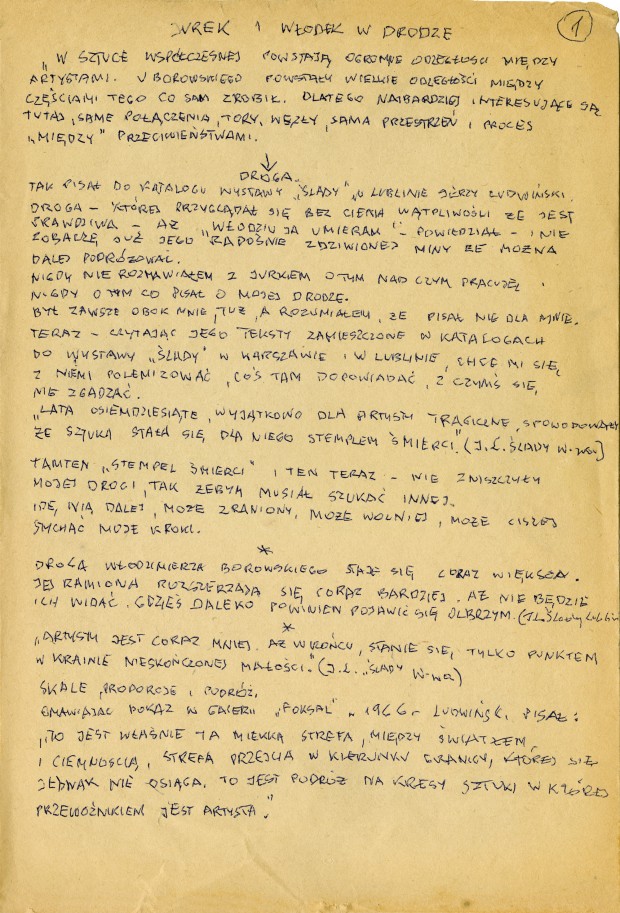 JUREK I WŁODEK W DRODZE
1
„W SZTUCE WSPÓŁCZESNEJ POWSTAJĄ OGROMNE ODLEGŁOŚCI MIĘDZY
ARTYSTAMI. U BOROWSKIEGO POWSTAŁY WIELKIE ODLEGŁOŚCI MIĘDZY
CZĘŚCIAMI TEGO CO SAM ZROBIŁ. DLATEGO NAJBARDZIEJ INTERESUJĄCE SĄ
TUTAJ, SAME POŁĄCZENIA, TORY, WĘZŁY, SAMA PRZESTRZEŃ I PROCES
„MIĘDZY" PRZECIWIEŃSTWAMI.
DROGA.
TAK PISAŁ DO KATALOGU WYSTAWY „ŚLADY" W LUBLINIE JERZY LUDWIŃSKI.
DROGA – KTÓREJ PRZYGLĄDAŁ SIĘ BEZ CIENIA WĄTPLIWOŚCI ŻE JEST
PRAWDZIWA – AŻ „WŁODZIU JA UMIERAM" – POWIEDZIAŁ – I NIE
ZOBACZĘ JUŻ JEGO RADOŚNIE ZDZIWIONEJ MINY ŻE MOŻNA
DALEJ PODRÓŻOWAĆ.
NIGDY NIE ROZMAWIAŁEM Z JURKIEM O TYM NAD CZYM PRACUJĘ I
NIGDY O TYM CO PISAŁ O MOJEJ DRODZE.
BYŁ ZAWSZE OBOK MNIE, TUŻ, A ROZUMIAŁEM, ŻE PISAŁ NIE DLA MNIE.
TERAZ – CZYTAJĄC JEGO TEKSTY ZAMIESZCZONE W KATALOGACH
DO WYSTAWY „ŚLADY" W WARSZAWIE I W LUBLINIE, CHCE MI SIĘ,
Z NIEMI POLEMIZOWAĆ, COŚ TAM DOPOWIADAĆ, Z CZYMŚ SIĘ,
NIE ZGADZAĆ.
„LATA OSIEMDZIESIĄTE, WYJĄTKOWO DLA ARTYSTY TRAGICZNE, SPOWODOWAŁY
ŻE SZTUKA STAŁA SIĘ DLA NIEGO STEMPLEM ŚMIERCI." (J.L. ŚLADY W-wa)
TAMTEN „STEMPEL ŚMIERCI" I TEN TERAZ – NIE ZNISZCZYŁY
MOJEJ DROGI, TAK ŻEBYM MUSIAŁ SZUKAĆ INNEJ.
IDĘ, NIĄ DALEJ, MOŻE ZRANIONY, MOŻE WOLNIEJ, MOŻE CISZEJ
SŁYCHAĆ MOJE KROKI.
*
DROGA WŁODZIMIERZA BOROWSKIEGO STAJE SIĘ CORAZ WIĘKSZA.
JEJ RAMIONA ROZSZERZAJĄ SIĘ CORAZ BARDZIEJ. AŻ NIE BĘDZIE
ICH WIDAĆ. GDZIEŚ DALEKO POWINIEN POJAWIĆ SIĘ OLBRZYM. (J.L. Ślady Lublin)
*
„ARTYSTY JEST CORAZ MNIEJ. AŻ W KOŃCU, STANIE SIĘ, TYLKO PUNKTEM
W KRAINIE NIESKOŃCZONEJ MAŁOŚCI." (J.L. „ŚLADY W-wa)
SKALE, PROPORCJE I PODRÓŻ.
OMAWIAJĄC POKAZ W GALERII „FOKSAL" W 1966 r. LUDWIŃSKI PISAŁ:
„TO JEST WŁAŚNIE TA MIĘKKA STREFA, MIĘDZY ŚWIATŁEM,
I CIEMNOŚCIĄ, STREFA PRZEJŚCIA W KIERUNKU GRANICY, KTÓREJ SIĘ
JEDNAK NIE OSIĄGA. TO JEST PODRÓŻ NA KRESY SZTUKI W KTÓREJ
PRZEWOŹNIKIEM JEST ARTYSTA."